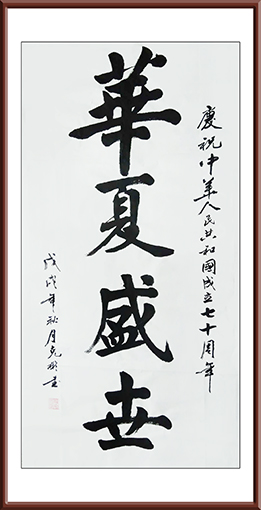 慶祝中華人民共和國成立七十周年
華夏盛世
戊戌年秋月克明書